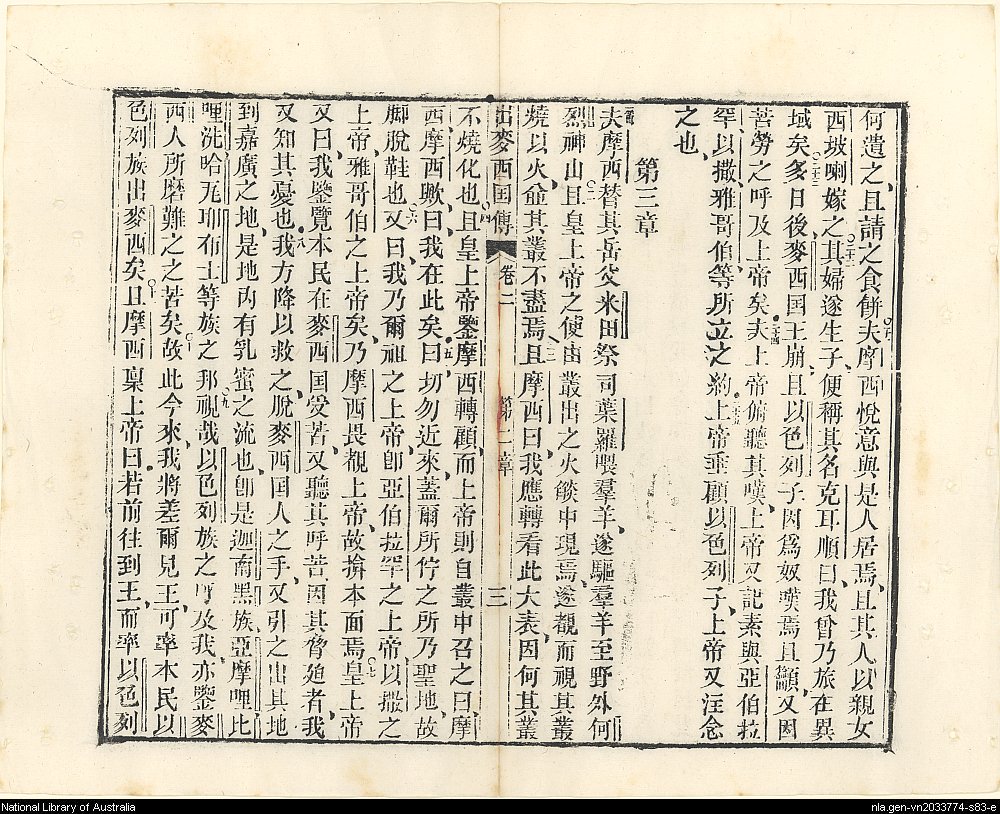 何遺之且請之食餅夫摩西悅意與是人居焉且其人以親女
西坡喇嫁之其婦遂生子便稱其名克耳順曰我曾乃旅在異
域矣多日後麥西国王崩且以色列子因爲奴嘆焉且籲又因
苦勞之呼及上帝矣夫上帝俯聽其嘆上帝又記素與亞伯拉
罕以撒雅哥伯等所立之約上帝垂顧以色列子上帝又注念
之也
第三章
夫摩西替其岳父米田祭司葉羅喂羣羊遂驅羣羊至野外何
烈神山且皇上帝之使由叢出之火燄中現焉遂覩而視其叢
燒以火並其叢不盡焉且摩西曰我應轉看此大表因何其叢
出麥西国傳 卷二 第二章 三
不燒化也且皇上帝鑒摩西轉顧而上帝則自叢中召之曰摩
西摩西歟曰我在此矣曰切勿近來蓋爾所佇之所乃聖地故
脚脫鞋也又曰我乃爾祖之上帝卽亞伯拉罕之上帝以撒之
上帝雅哥伯之上帝矣乃摩西畏覩上帝故揜本面焉皇上帝
又曰我鑒覽本民在麥西国受苦又聽其呼苦因其脅廹者我
又知其憂也我方降以救之脫麥西国人之手又引之出其地
到嘉廣之地是地內有乳蜜之流也卽是迦南黑族亞摩哩比
哩洗哈瓦耶布士等族之邦視哉以色列族之呼及我亦鑒麥
西人所磨難之之苦矣故此今來我將差爾見王可率本民以
色列族出麥西矣且摩西稟上帝曰若前往到王而率以色列